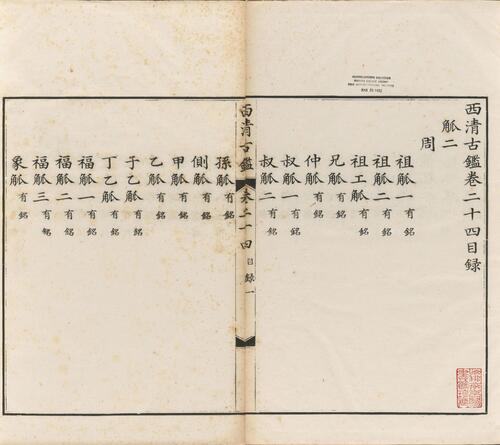 西清古鑑卷二十四目録
觚二
周
祖觚一有銘
祖觚二有銘
祖工觚有銘
兄觚有銘
仲觚有銘
叔觚一有銘
叔觚二有銘
西清古鑑 卷二十四 目録 一
孫觚有銘
側觚有銘
甲觚有銘
乙觚有銘
子乙觚有銘
丁乙觚有銘
福觚一有銘
福觚二有銘
福觚三有銘
象觚有銘